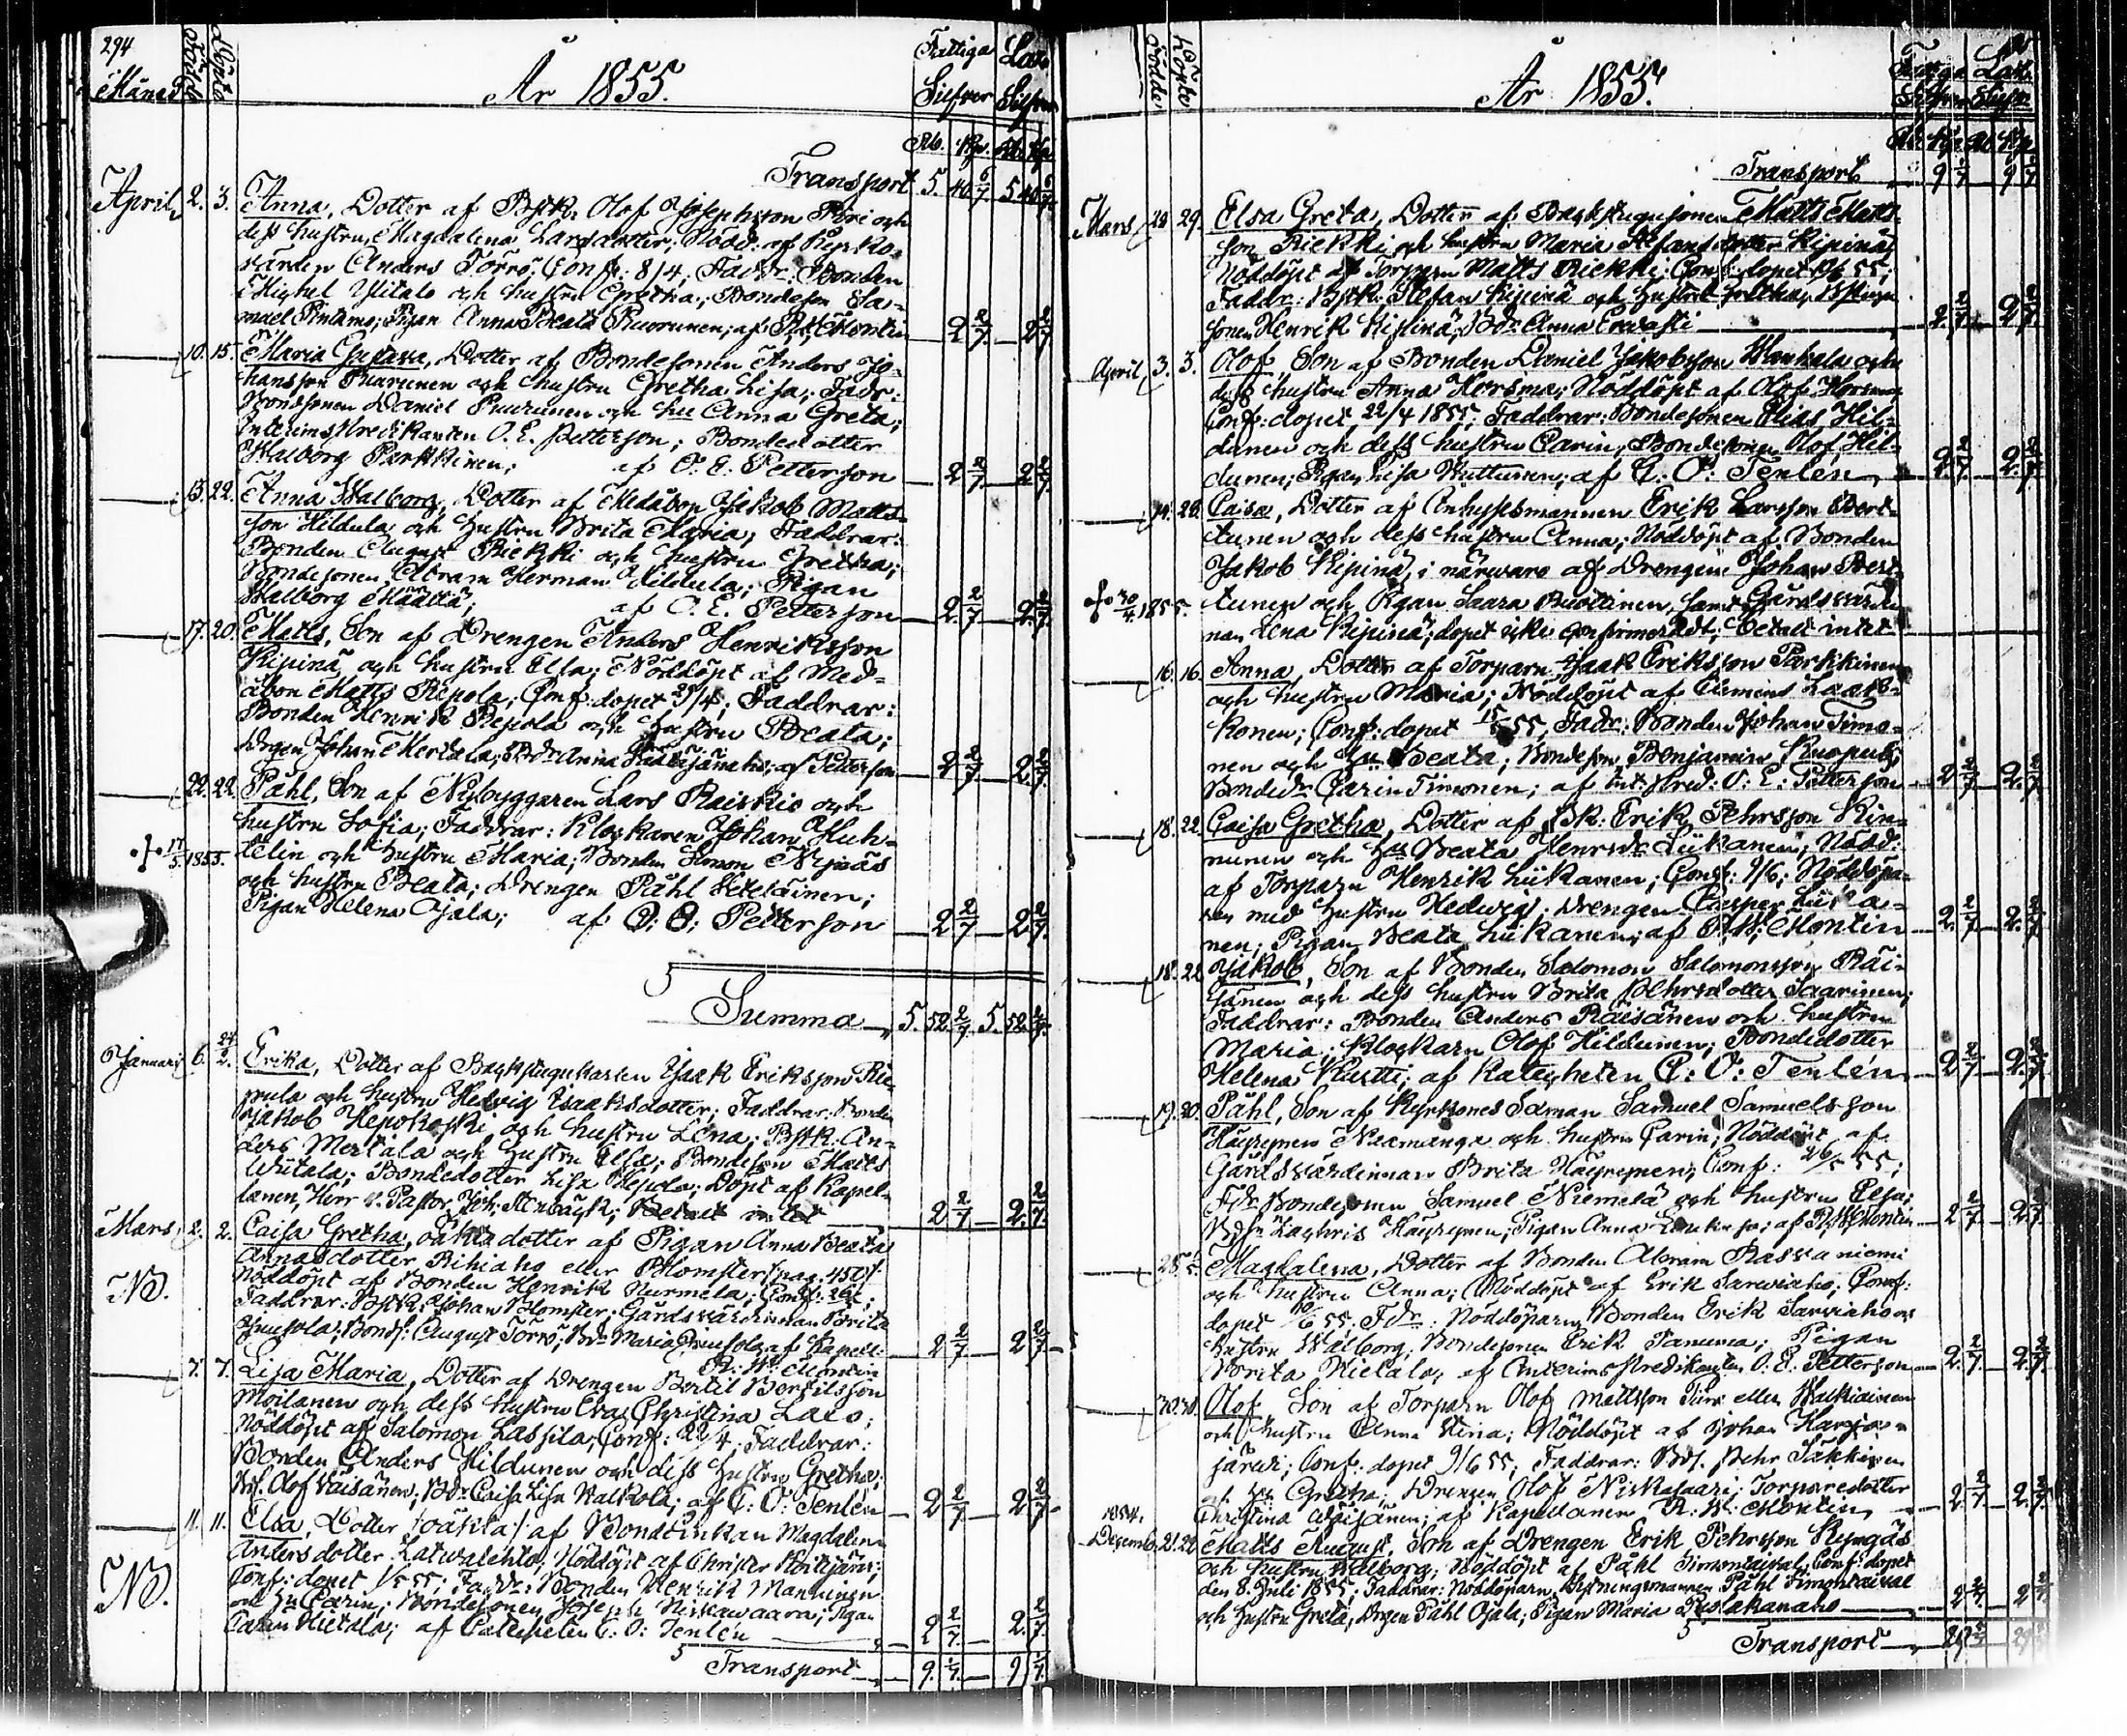 294
Månad Födde Döpte År 1855. Fattiga Silfver Laz. Silfver
Rb. Kp. Rb. Kp.
Transport 5. 40 6/7 5 40 6/7
April 2. 3. Anna, Dotter af Bstk. Olof Josephsson Pöri och
dess hustru Magdalena Larsdotter; Nödd. af Kyrko-
värden Anders Törrö; Conf: 8/4, Faddr: Bonden
Michel Ylitalo och hustru Gretha; Bondeson Sa-
muel Pintamo; Pigan Anna Beata Puurunen; af R. W. Montin 2 2/7 2 2/7
10. 15. Maria Gustava, Dotter af Bondesonen Anders Jo-
hansson Puurunen och hustru Gretha Lisa; Faddr:
Bondsonen Daniel Puurunen och hu Anna Greta;
Interims Predikanten O. E. Petterson; Bondedotter
Walborg Parkkinen; af O. E. Petterson 2 2/7 2 2/7
15. 22. Anna Walborg, Dotter af Medåbon Jakob Matts-
son Hildula och Hustru Brita Maria; Faddrar:
Bonden August Riekki och hustru Gretha;
Bondesonen Abram Herman Hildula; Pigan
Walborg Määttä; af O. E. Petterson 2 2/7 2 2/7
17. 20. Matts, Son af Drengen Anders Henriksson
Kipinä och hustru Elsa; Nöddöpt af Med-
åbon Matts Repola; Conf: dopet 29/4; Faddrar:
Bonden Henrik Repola och Hustru Beata;
Drgen Johan Mertala; Bdr Anna Jänaho; af Petterson 2 2/7 2 2/7
22. 22. Påhl, Son af Nybyggaren Lars Raiskio och
hustru Sofia; Faddrar: Klockaren Johan Huh-
17/5 1855. telin och hustru Maria; Bonden Simon Nynäs
och hustru Beata; Drengen Påhl Heteläinen;
Pigan Helena Ojala; af O: E: Petterson 2 2/7 2 2/7
Summa 5. 52. 2/7 5. 52. 2/7
Januari 6. 24/2. Erika, Dotter af Backstugukarlen Isaak Eriksson Ru-
pula och hustru Hedvig Isaaksdotter; Faddrar: Bonden
Jakob Hepokoski och hustru Lena; Bstk: An-
ders Mertala och hustru Elsa; Bondeson Matts
Wiitala; Bondedotter Lisa Repola; Döpt af Kapel-
lanen, Herr v. Pastor Joh: Stenbäck; Betalt intet 2 2/7 2. 2/7
Mars 2. 2. Caisa Gretha, oäkta dotter af Pigan Anna Beata
NB. Annasdotter Rihiaho eller Blomster /:pag: 450:/
Nöddöpt af Bonden Henrik Nurmela; Conf:
Faddrar: Bstk. Johan Blomster; Gårdsvärdinnan Brita
Juusola; Bonds: August Törrö; Bdr Maria Juusola; af Kapell:
R. W. Montin 2 2/7 2 2/7
7. 7. Lisa Maria, Dotter af Drengen Bertil Bertilsson
Moilanen och dess hustru Eva Christina Laes;
Nöddöpt af Salomon Lassila; Conf: 22/4; Faddrar:
Bonden Anders Hildunen och dess Hustru Gretha;
Bs. Olof Väisänen; Bdr Caisa Lisa Walkola; af C: O: Tenlén 2 2/7 2 2/7
11. 11. Elsa, Dotter /:oäkta:/ af Bondeinkan Magdalena
NB. Andersdotter Latwalehto; Nöddöpt af Christer
Conf: dopet 1/5 55; Faddr: Bonden Henrik Manninen
och hu Carin; Bondesonen Joseph Niskawaara; Pigan
Carin Hietala; af Catecheten C: O: Tenlén 2 2/7 2. 2/7
Transport 9. 1/7 9 1/7
Födde Döpte År 1855. Fattiga Silfver Laz. Silfver
Rb Kp Rb Kp
Transport 9 1/7 9 1/7
Mars 24 29. Elsa Greta, Dotter af Backstugusonen Matts Matts-
son Riekki och hustru Maria Stefansdotter Kipinä
Nöddöpt af Torparn Matts Riekki; Conf: dopet 55;
Faddr: Bstk: Stefan Kipinä och hustru Gretha; Bstugu
sonen Henrik Kipinä, Bdr: Anna Erwasti 2 2/7 2 2/7
April 3. 3. Olof, Son af Bonden Daniel Jakobsson Wanhala och
dess hustru Anna Horsma; Nöddöpt af Olof Horsma
Conf: dopet 22/4 1855; Faddrar: Bondesonen Elias Hil-
dunen och dess hustru Carin, Bondesonen Olof Hil-
dunen; Pigan Lisa Huttunen; af C: O: Tenlén 2. 2/7 2. 2/7
14. 28. Caisa, Dotter af Inhysesmannen Erik Larsson Bert-
tunen och dess hustru Anna; Nöddöpt af Bonden
Jakob Kipinä, i närwaro af Drengen Johan Bert
30/4 1855. tunen och Pigan Saara Buottinen, samt Gårdsvärdin
nan Lena Kipinä; dopet icke confirmeradt; Betalt intet
16. 16. Anna, Dotter af Torparn Isaak Eriksson Parkkinen
och hustru Maria; Nöddöpt af Clemens Laak-
konen; Conf: dopet 15/ 55; Faddr: Bonden Johan Timo-
nen och Hu Beata; Bondeson Benjamin Kuopus;
Bonded: Carin Timonen; af Int: Pred: O: E: Petterson 2 2/7 2. 2/7
18. 22. Caisa Gretha, Dotter af Bk. Erik Pehrsson Kin-
nunen och Hu Beata Henrsdr Liikanen; Nödd:
af Torparn Henrik Liikanen; Conf: 9/6; Nöddöpa-
ren med Hustru Hedwig; Drengen Casper Liika-
nen; Pigan Beata Liikanen; af R. W. Montin 2. 2/7 2. 2/7
18. 22 Jakob, Son af Bonden Salomon Salomonsson Räi-
sänen och dess hustru Brita Pehrsdotter Saarinen;
Faddrar: Bonden Anders Räisänen och hustru
Maria; Klockarn Olof Hildunen; Bondedotter
Helena Kurtti; af Kateqheten C: O: Tenlén 2 2/7 2. 2/7
19. 20. Påhl, Son af Kyrkones Sexman Samuel Samuelsson
Häyrynen Naamanga och hustru Carin; Nöddöpt af
Gårdsvärdinnan Brita Häyrynen; Conf: 26/5 55;
Fdr Bondesonen Samuel Niemelä och hustru Elsa;
Bdsn Zachris Häyrynen; Pigan Anna; af R. W. Montin 2 2/7 2. 2/7
28. Magdalena, Dotter af Bonden Abram Raswaniemi
och hustru Anna; Nöddöpt af Erik Sarwiaho; Conf:
dopet 10/6 55; Fdr: Nöddöparn, Bonden Erik Sarwiaho och
hustru Walborg; Bondesonen Erik Tamma; Pigan
Brita Hietala; af Interims Predikanten O. E. Petterson 2. 2/7 2 2/7
30 30. Olof Son af Torparn Olof Mattsson
och hustru Anna Stina; Nöddöpt af Johan Karja-
järwi; Conf: dopet 9/6 55; Faddrar: Bds. Pehr Säkkinen
och hu Gretha; Drengen Olof Niskasaari; Torparedotter
Christina Väisänen; af Kapellanen R. W. Montin 2 2/7 2. 2/7
1854.
Decemb. 21. 22 Matts August, Son af Drengen Erik Pehrsson Kyngäs
och hustru Walborg; Nöddöpt af Påhl Simontaival; Conf: dopet
den 8. Juli 1855; Faddrar: Nöddöparn, Påhl Simontaival
och Hustru Greta, Drgen Påhl Ojala; Pigan Maria 2 2/7 2 2/7
Transport